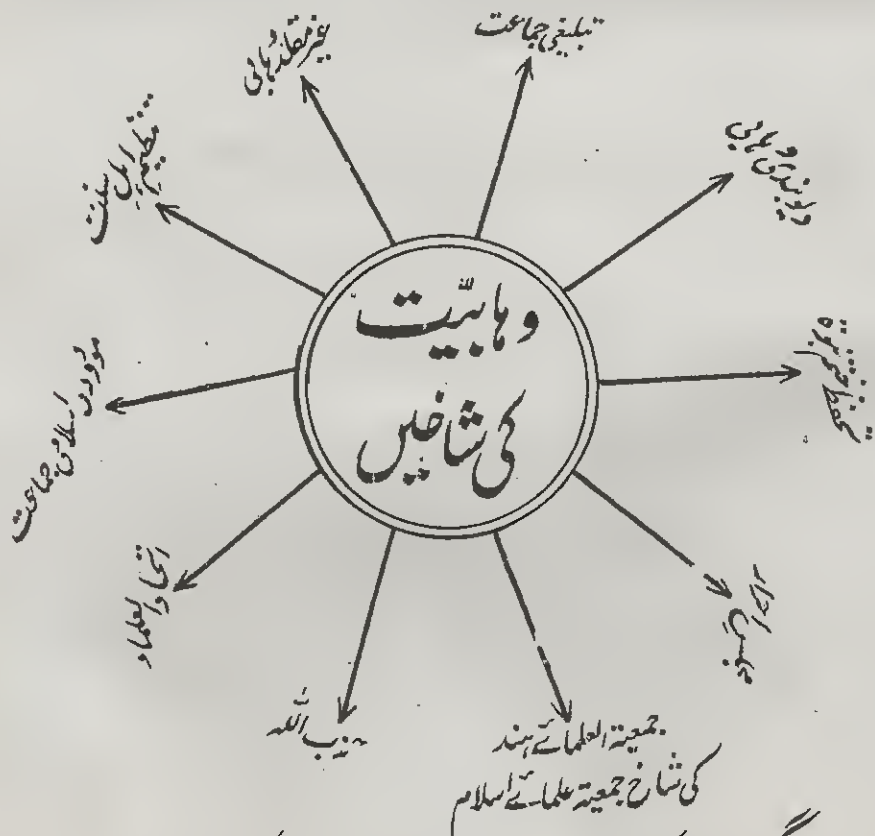 وہابیّت
کی شاخیں
تبلیغی جماعت
دیوبندی وہابی
تحفظ ختم نبوۃ
احرار
جمعیۃ العلمائے ہند
کی شاخ جمعیۃ علمائے اسلام
حزب اللّٰہ
اتحاد العلماء
مودودی اسلامی جماعت
تنظیم اہل سنت
غیر مقلد وہابی